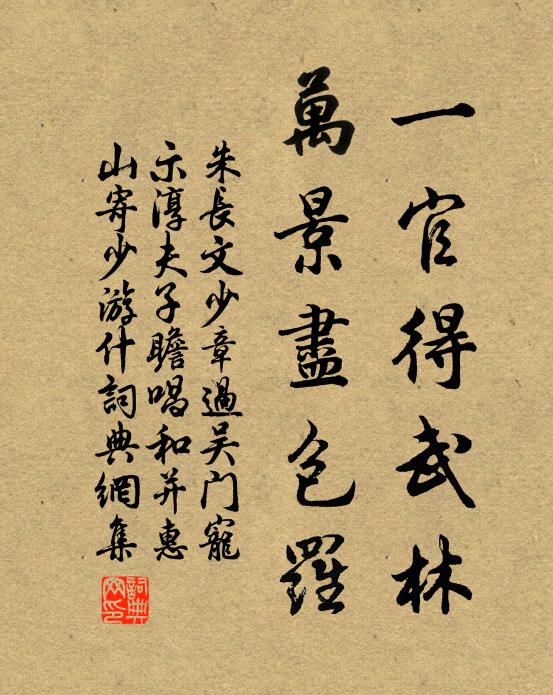 一官得武林
萬景盡包羅
朱長文少章過吴门寵
示淳夫子瞻唱和并惠
山寄少游什詞典網集